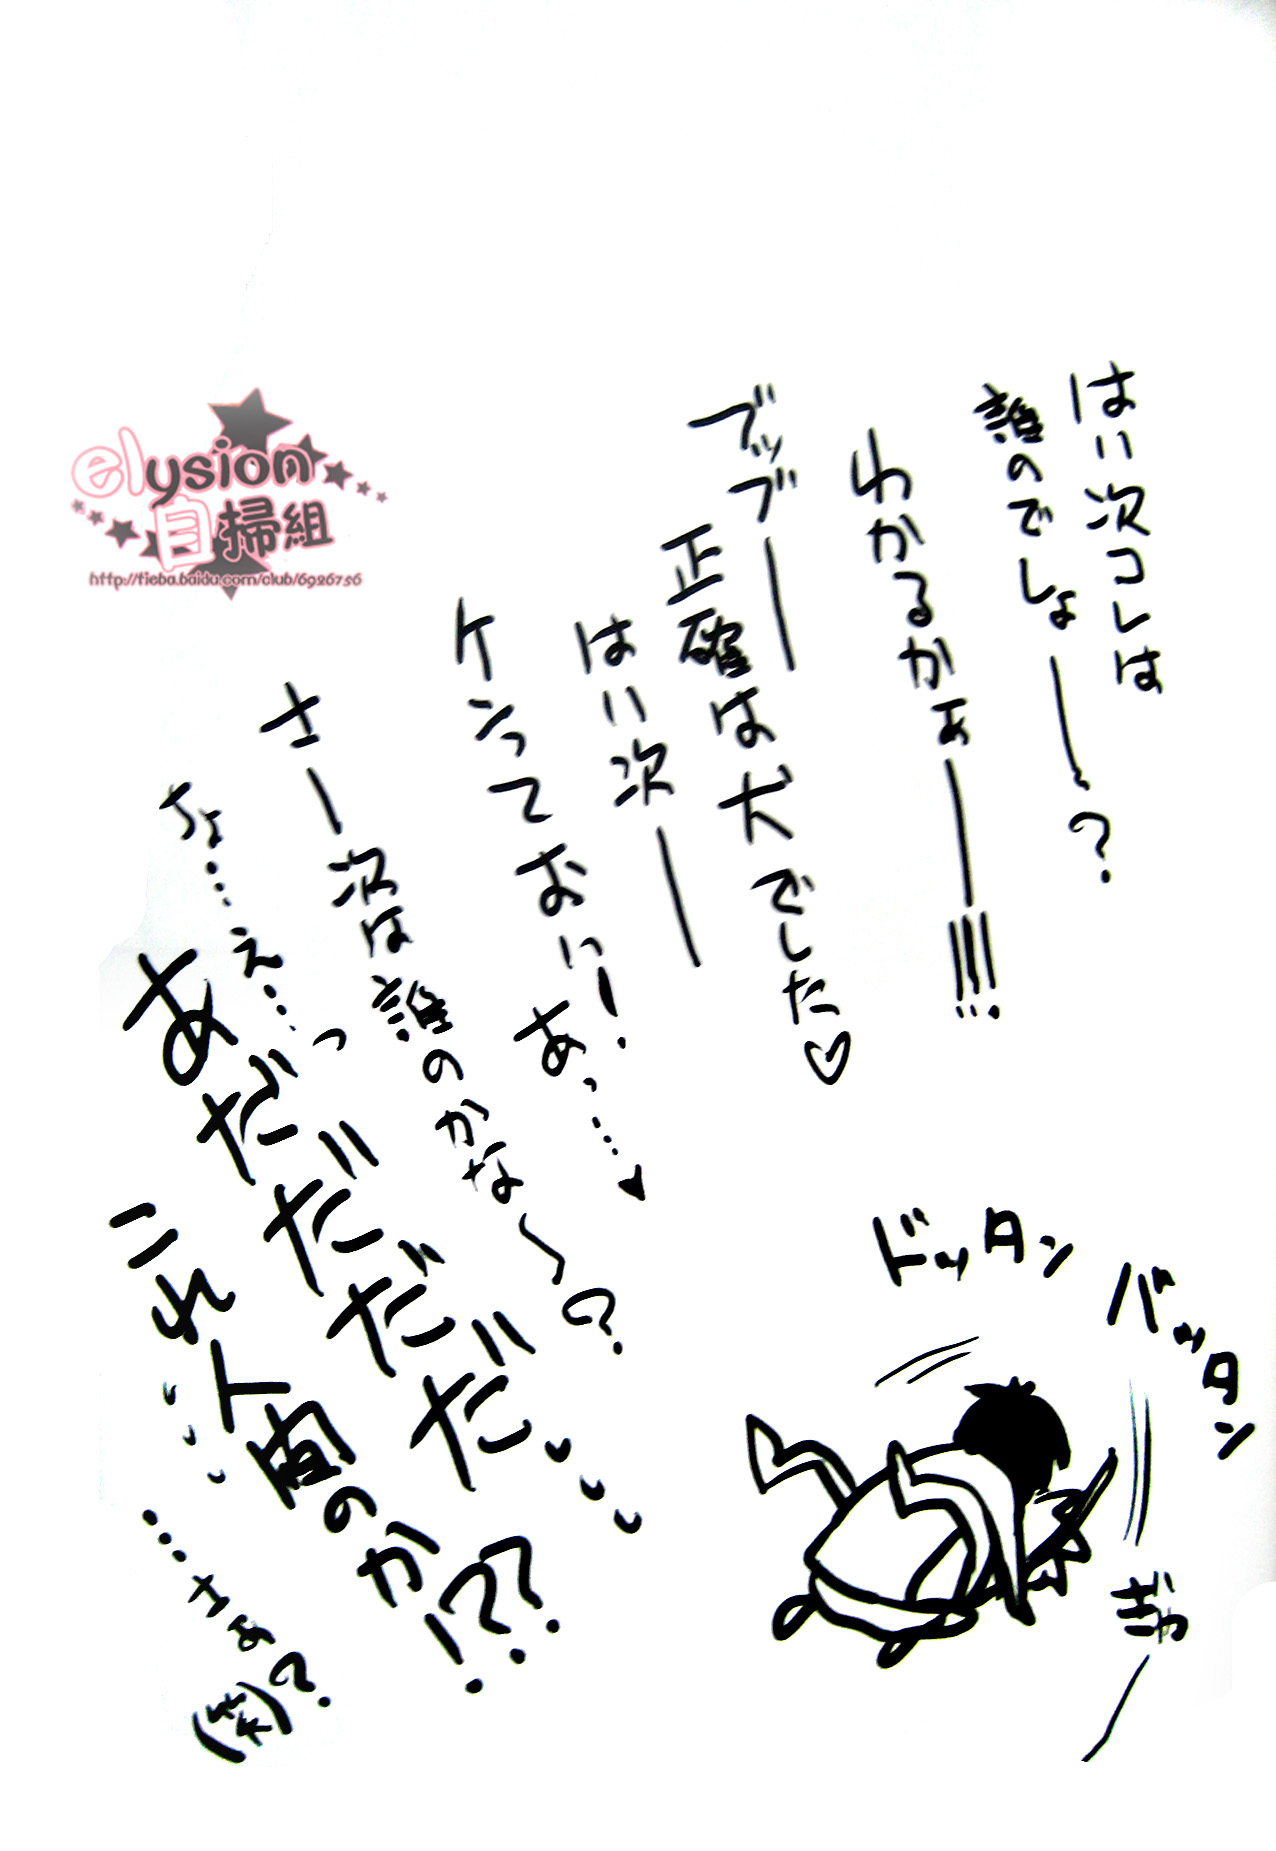 はい次コレは
誰のでしょーー?
わかるかぁーー!!!!
ブッブーー
正確は犬でした♡
はい次ーー
ケンっておい!あっ…♥
さー次は誰のかな〜?
ちょ…え…っ
あだだだだ
これ人間のか!???
…さぁ(笑)?
ドッタン
バッタン
ぎゃー
elysion
自掃組
http://tieba.baidu.com/club/6926756